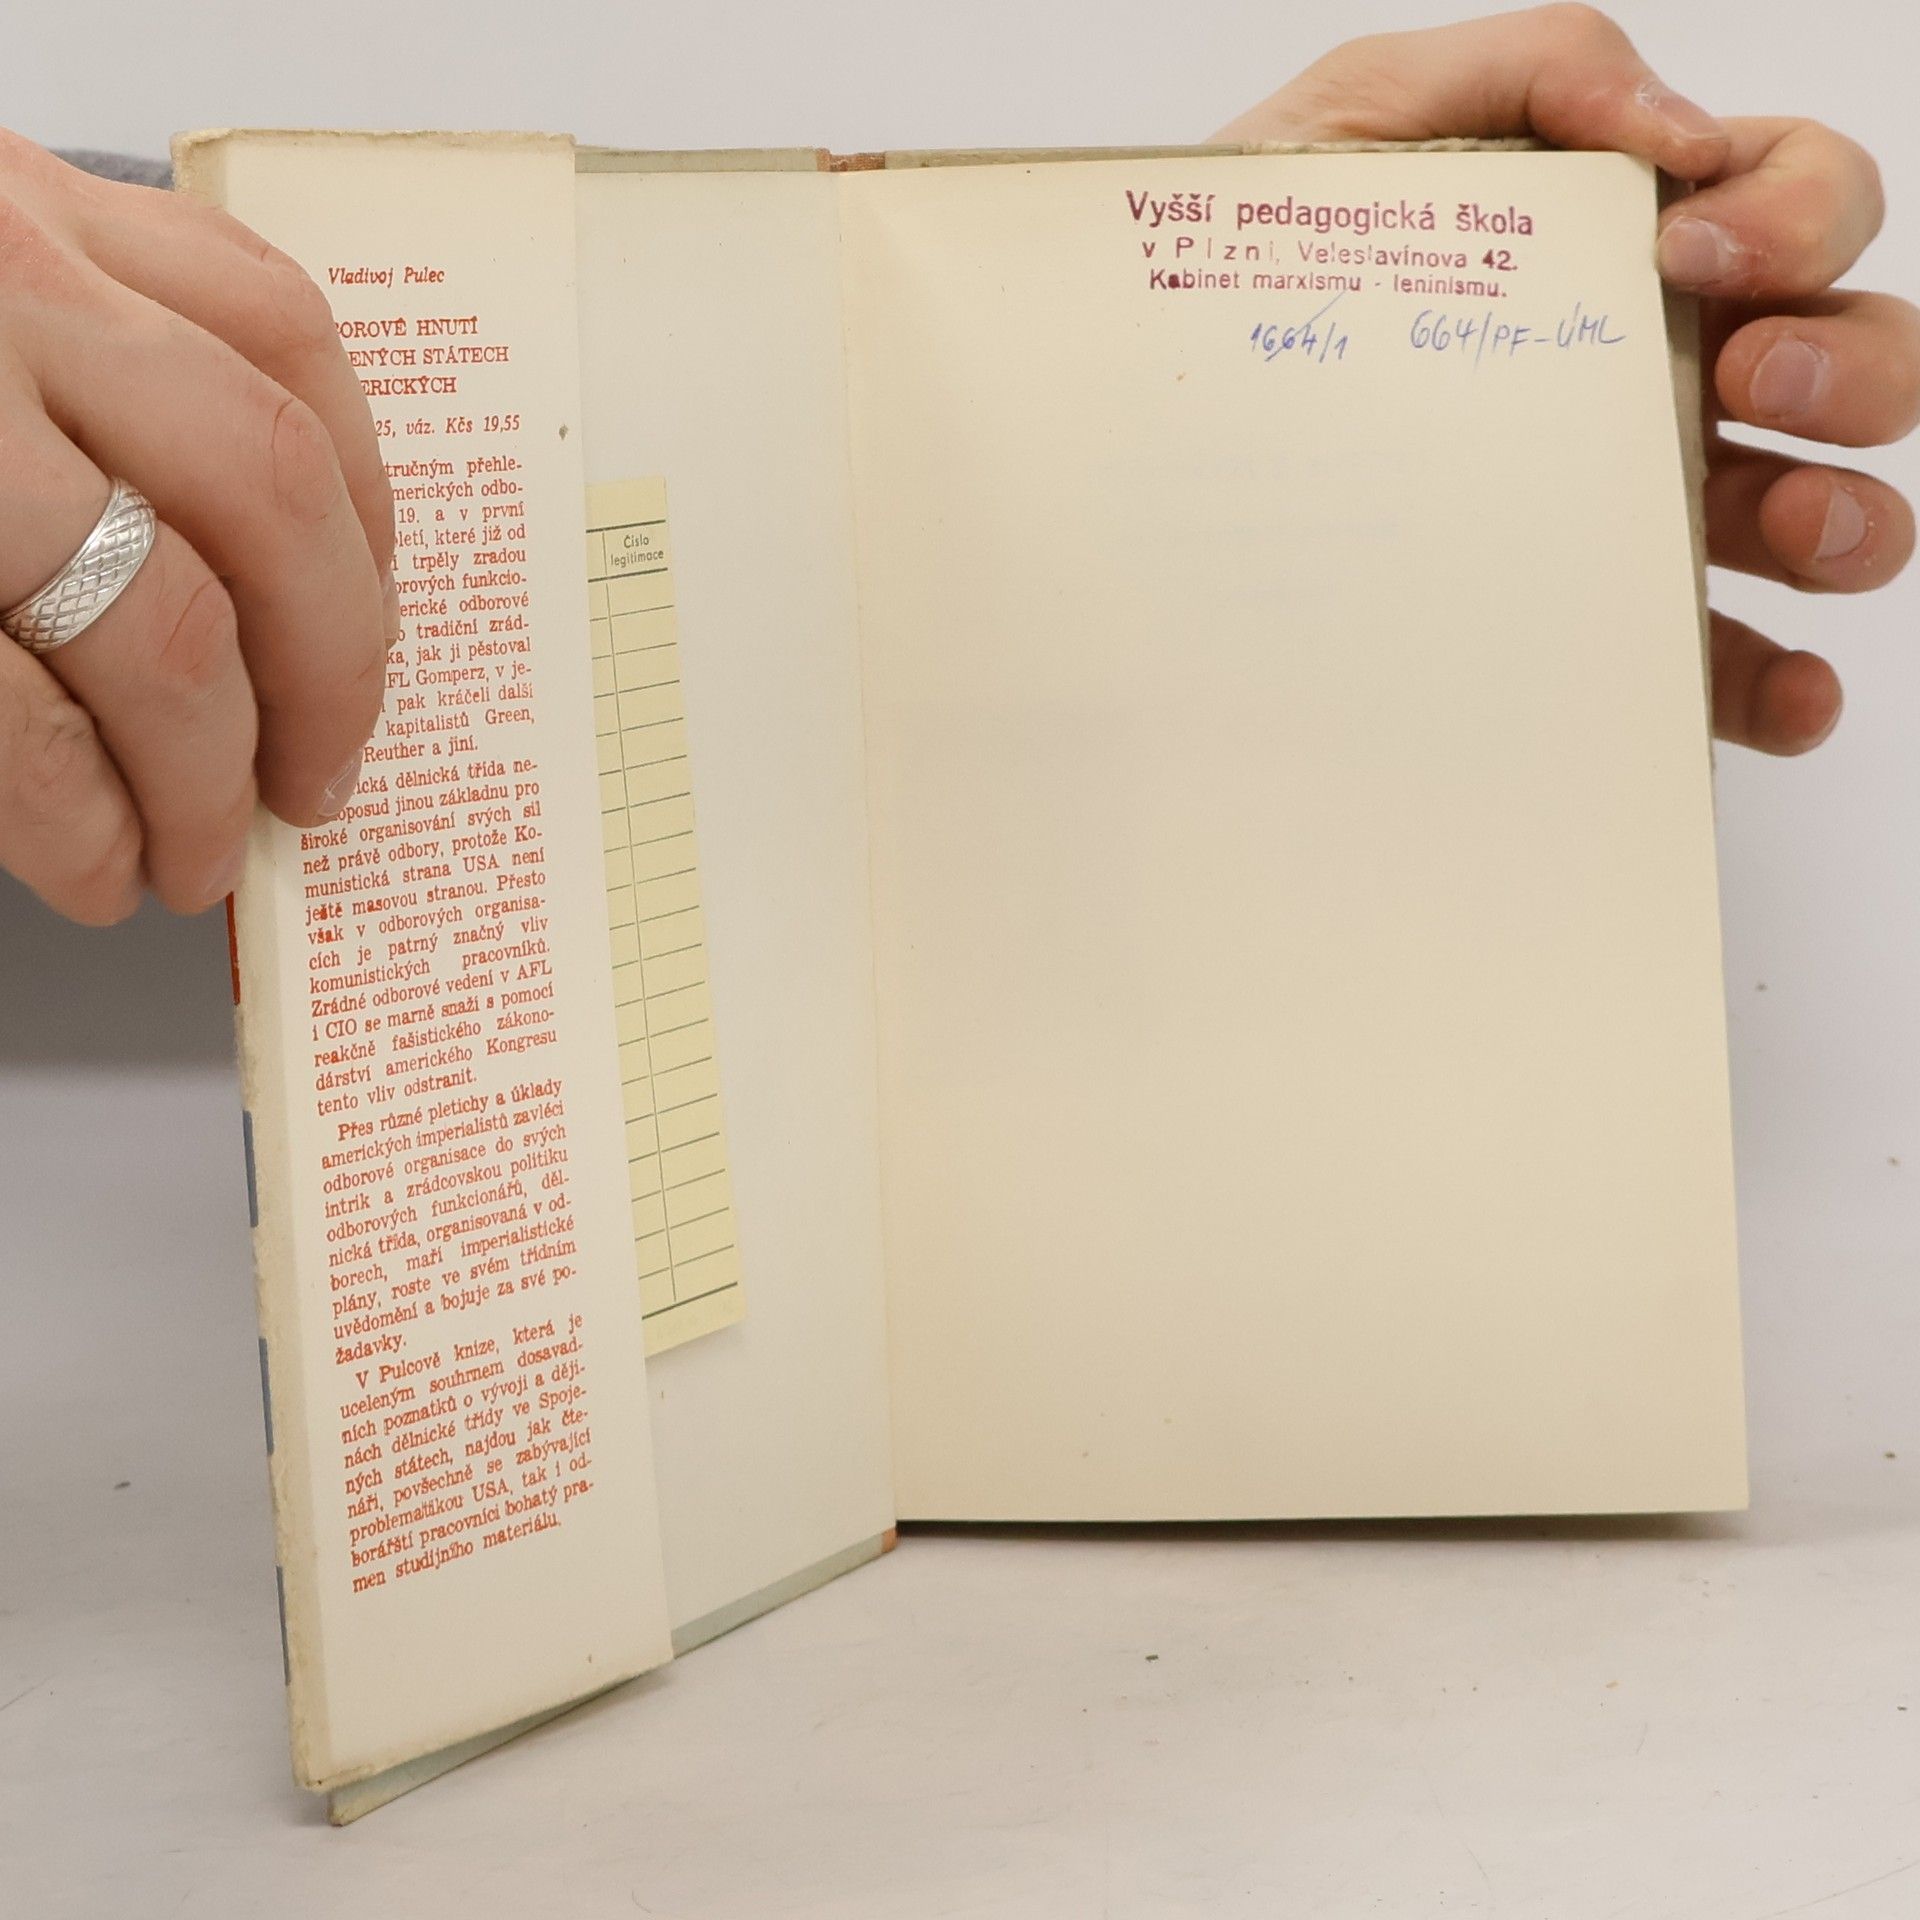 Vladivoj Pulec
OROVÉ HNUTÍ
ENÝCH STÁTECH
ERICKÝCH
25, váz. Kčs 19,55
tručným přehle-
merických odbo-
19. a v první
letí, které již od
í trpěly zradou
orových funkcio-
erické odborové
o tradiční zrád-
ka, jak ji pěstoval
FL Gomperz, v je-
pak kráčeli další
kapitalistů Green,
Reuther a jiní.
ická dělnická třída ne-
oposud jinou základnu pro
široké organisování svých sil
než právě odbory, protože Ko-
munistická strana USA není
ještě masovou stranou. Přesto
však v odborových organisa-
cích je patrný značný vliv
komunistických pracovníků.
Zrádné odborové vedení v AFL
i CIO se marně snaží s pomocí
reakčně fašistického zákono-
dárství amerického Kongresu
tento vliv odstranit.
Přes různé pletichy a úklady
amerických imperialistů zavléci
odborové organisace do svých
intrik a zrádcovskou politiku
odborových funkcionářů, děl-
nická třída, organisovaná v od-
borech, maří imperialistické
plány, roste ve svém třídním
uvědomění a bojuje za své po-
žadavky.
V Pulcově knize, která je
uceleným souhrnem dosavad-
ních poznatků o vývoji a ději-
nách dělnické třídy ve Spoje-
ných státech, najdou jak čte-
náři, povšechně se zabývající
problematikou USA, tak i od-
borářští pracovníci bohatý pra-
men studijního materiálu.
Číslo
legitimace
Vyšší pedagogická škola
v Plzni, Veleslavínova 42.
Kabinet marxismu - leninismu.
1664/1 664/PF-ÚML